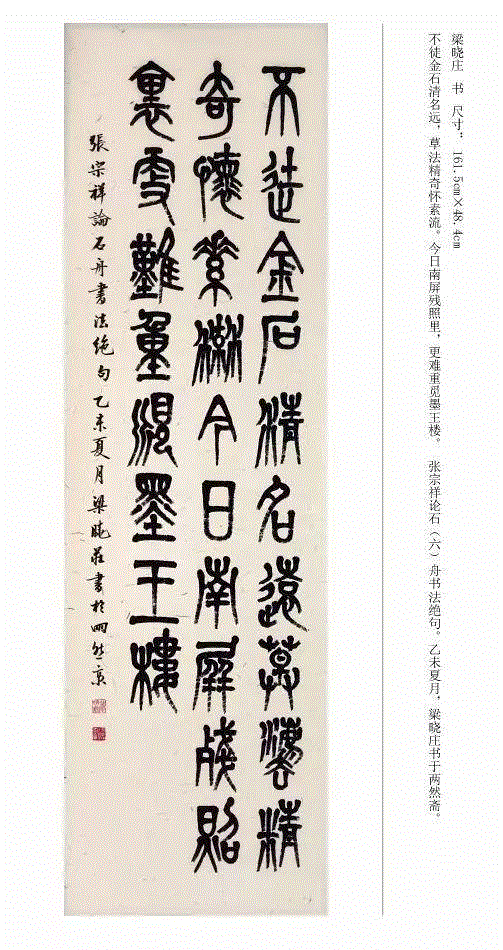 梁晓庄 书 尺寸：161.5cm×48.4cm
不徒金石清名远，草法精奇怀素流。今日南屏残照里，更难重觅墨王楼。 张宗祥论石（六）舟书法绝句。乙未夏月，梁晓庄书于两然斋。
不徒金石清名遠草灋精
奇懷素流今日南屏殘照
裏更難重覓墨王樓
張宗祥論石舟書法絶句乙未夏月梁曉莊書於兩然齋